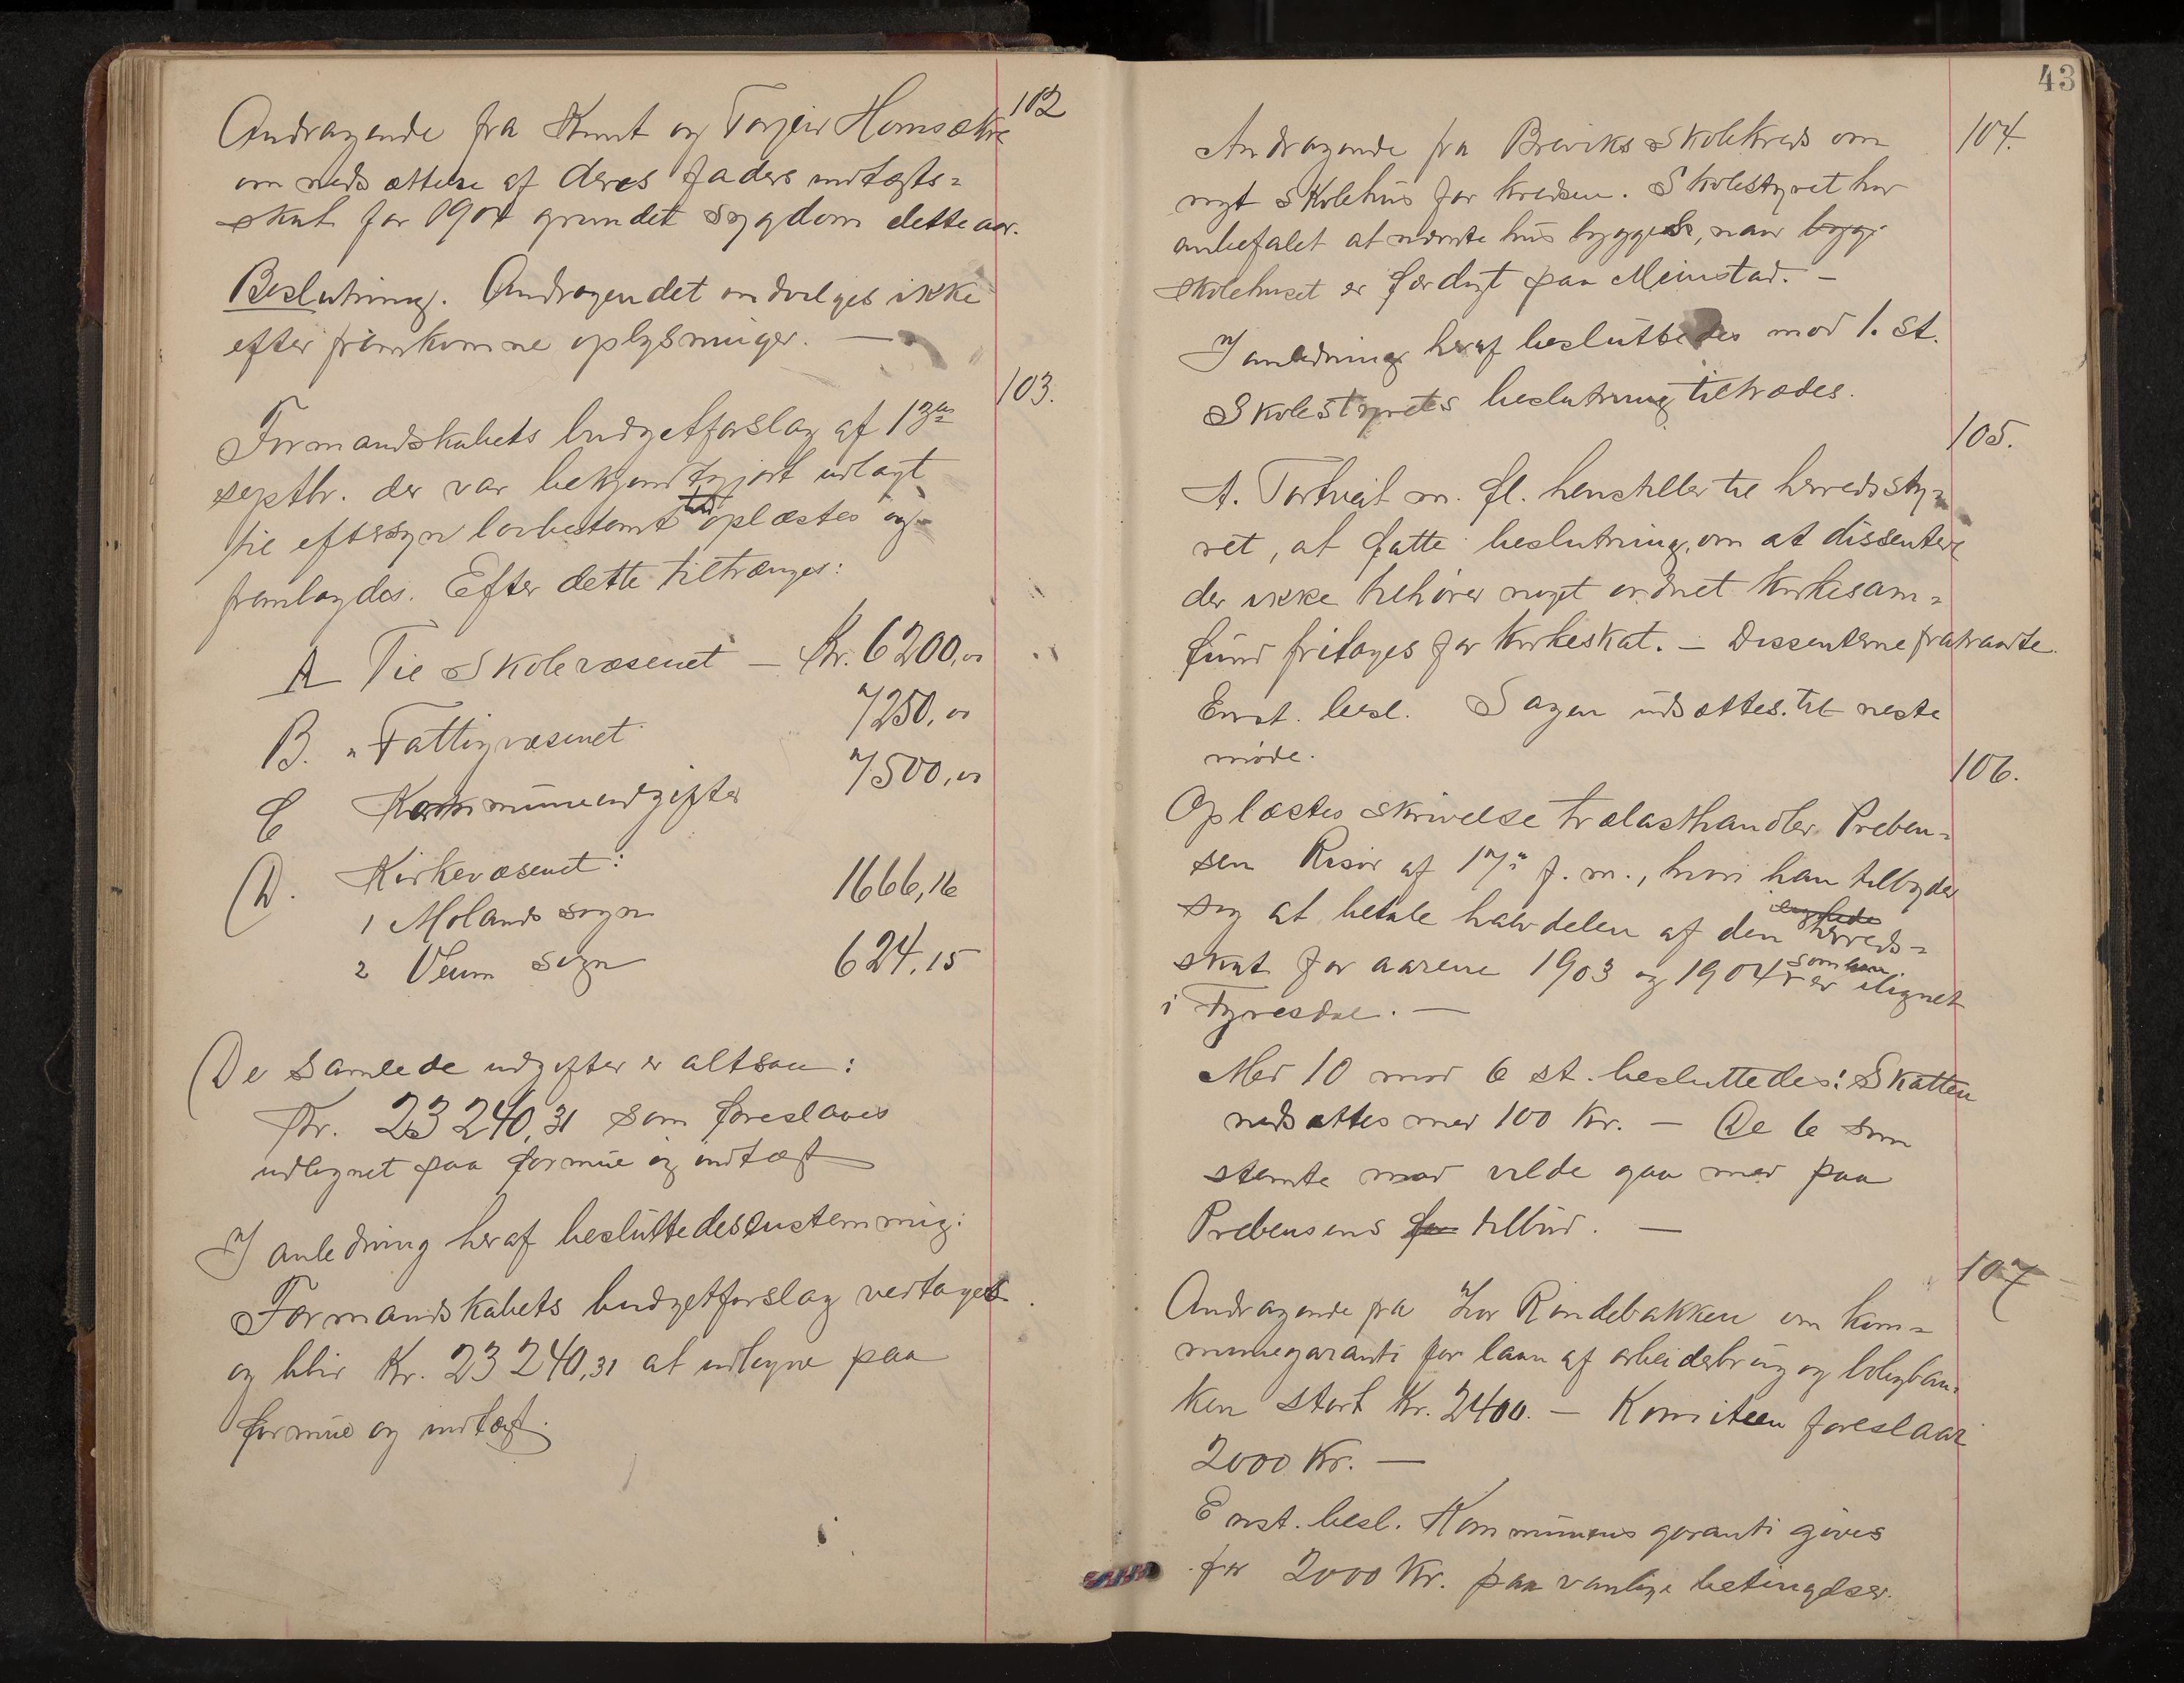 102
Andragende fra Knut og Torjeir Homsække
om nedsættelse af deres faders indtægts=
skat for 1904 grundet sygdom dette aar.
Beslutning. Andragendet indvilges ikke
efter fremkomne oplysninger. —
103.
Formandskabets budgetforslag af 13de
septbr. der var bekjendtgjort udlagt
til eftersyn lovbestemt tid oplæstes og
fremlagdes. Efter dette tiltrænges:
A Til Skolevæsenet — Kr. 6200,00
B. " Fattigvæsenet 7250,00
C Kommuneudgifter 7500,00
D. Kirkevæsenet:
1 Molands sogn 1666,16
2 Veum sogn 624,15
De samlede udgifter er altsaa:
Kr. 23240,31 som foreslaaes
udlignet paa formue og indtægt
I anledning heraf besluttedes enstemmig:
Formandskabets budgetforslag vedtages
og blir Kr. 23240,31 at udligne paa
formue og indtægt.
43
104.
Andragende fra Breviks Skolekreds om
nyt Skolehus for kredsen. Skolestyret har
anbefalet at nævnte hus bygges, naar bygg
skolehuset er færdigt paa Meinstad. —
I anledning heraf besluttedes mod 1. st.
Skolestyrets beslutning tiltrædes.
105.
A. Tortveit m. fl. henstiller til herredssty=
ret, at fatte beslutning, om at dissentere
der ikke tilhører noget ordnet kirkesam=
fund fritages for kirkeskat. — Dissenterne fratraadte.
Enst. besl. Sagen udsættes til neste
møde.
106.
Oplæstes skrivelse trælasthandler Preben=
sen Risør af 17de f. m., hvori han tilbyder
sig at betale halvdelen af den herreds=
skat for aarene 1903 og 1904 som han er ilignet
i Fyresdal. —
Med 10 mod 6 st. besluttedes: Skatten
nedsættes med 100 Kr. — De 6 som
stemte mod vilde gaa med paa
Prebensens for tilbud. —
107
Andragende fra Lor Rondebakken om kom=
munegaranti for laan af arbeiderbrug og boligban=
ken stort Kr. 2400. — Komiteen foreslaar
2000 Kr. —
Enst. besl. Kommunens garanti gives
for 2000 Kr. paa vanlige betingelser.